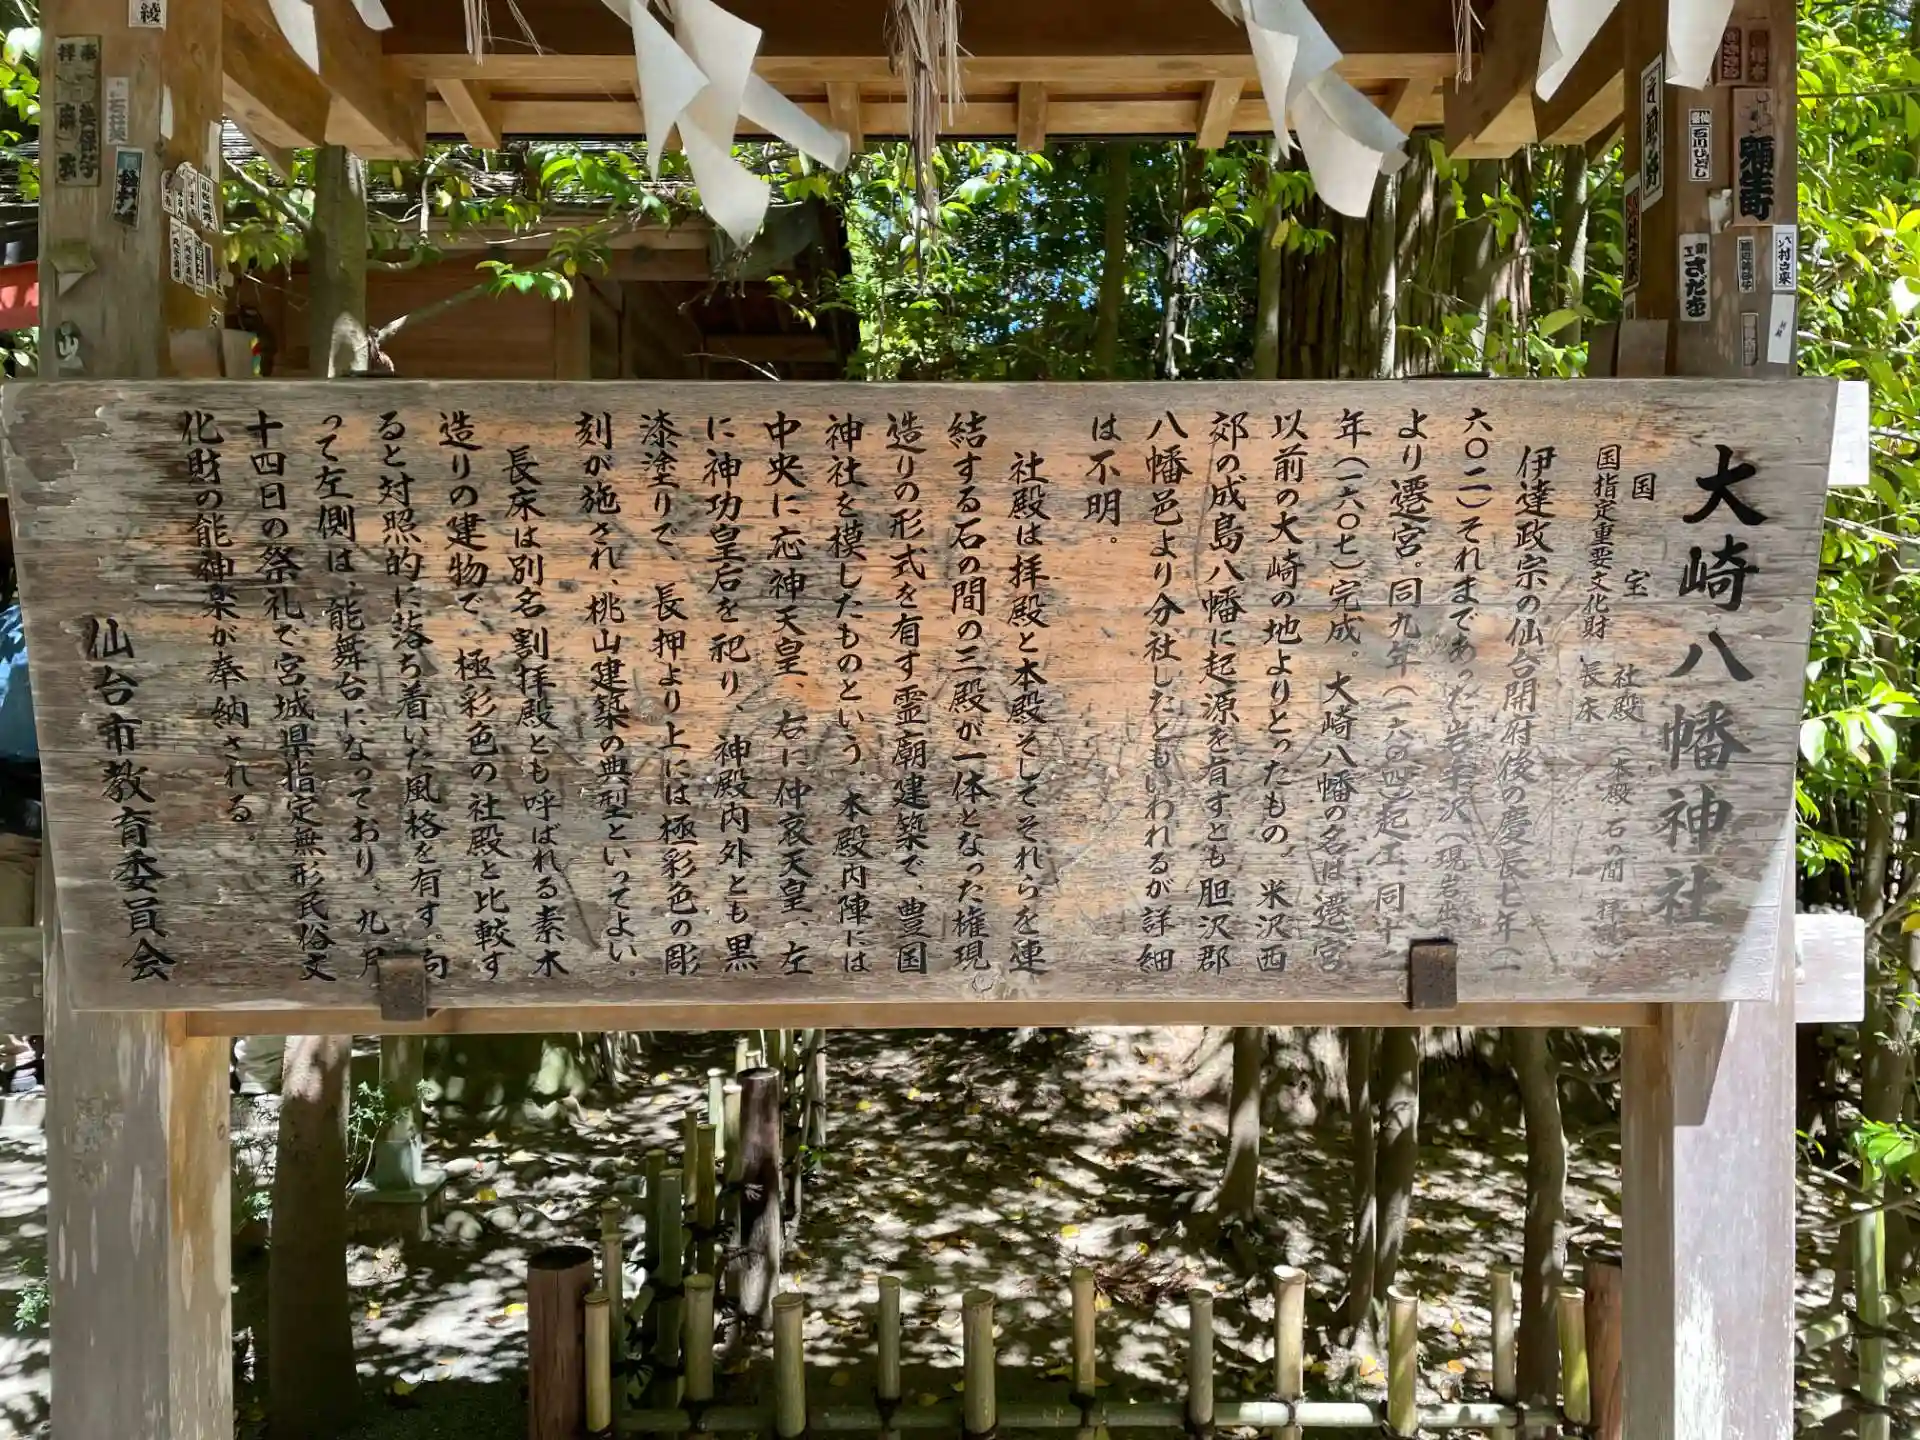 大崎八幡神社
国宝 社殿（本殿 石の間 拝殿）
国指定重要文化財 長床
伊達政宗の仙台開府後の慶長七年（一
六〇二）それまであった岩手沢（現岩出山）
より遷宮。同九年（一六〇四）起工、同十二
年（一六〇七）完成。大崎八幡の名は遷宮
以前の大崎の地よりとったもの。米沢西
郊の成島八幡に起源を有すとも胆沢郡
八幡邑より分社したともいわれるが詳細
は不明。
社殿は拝殿と本殿そしてそれらを連
結する石の間の三殿が一体となった権現
造りの形式を有す霊廟建築で、豊国
神社を模したものという。本殿内陣には
中央に応神天皇、右に仲哀天皇、左
に神功皇后を祀り、神殿内外とも黒
漆塗りで、長押より上には極彩色の彫
刻が施され、桃山建築の典型といってよい。
長床は別名割拝殿とも呼ばれる素木
造りの建物で、極彩色の社殿と比較す
ると対照的に落ち着いた風格を有す。向
って左側は、能舞台になっており、九月
十四日の祭礼で宮城県指定無形民俗文
化財の能神楽が奉納される。
仙台市教育委員会